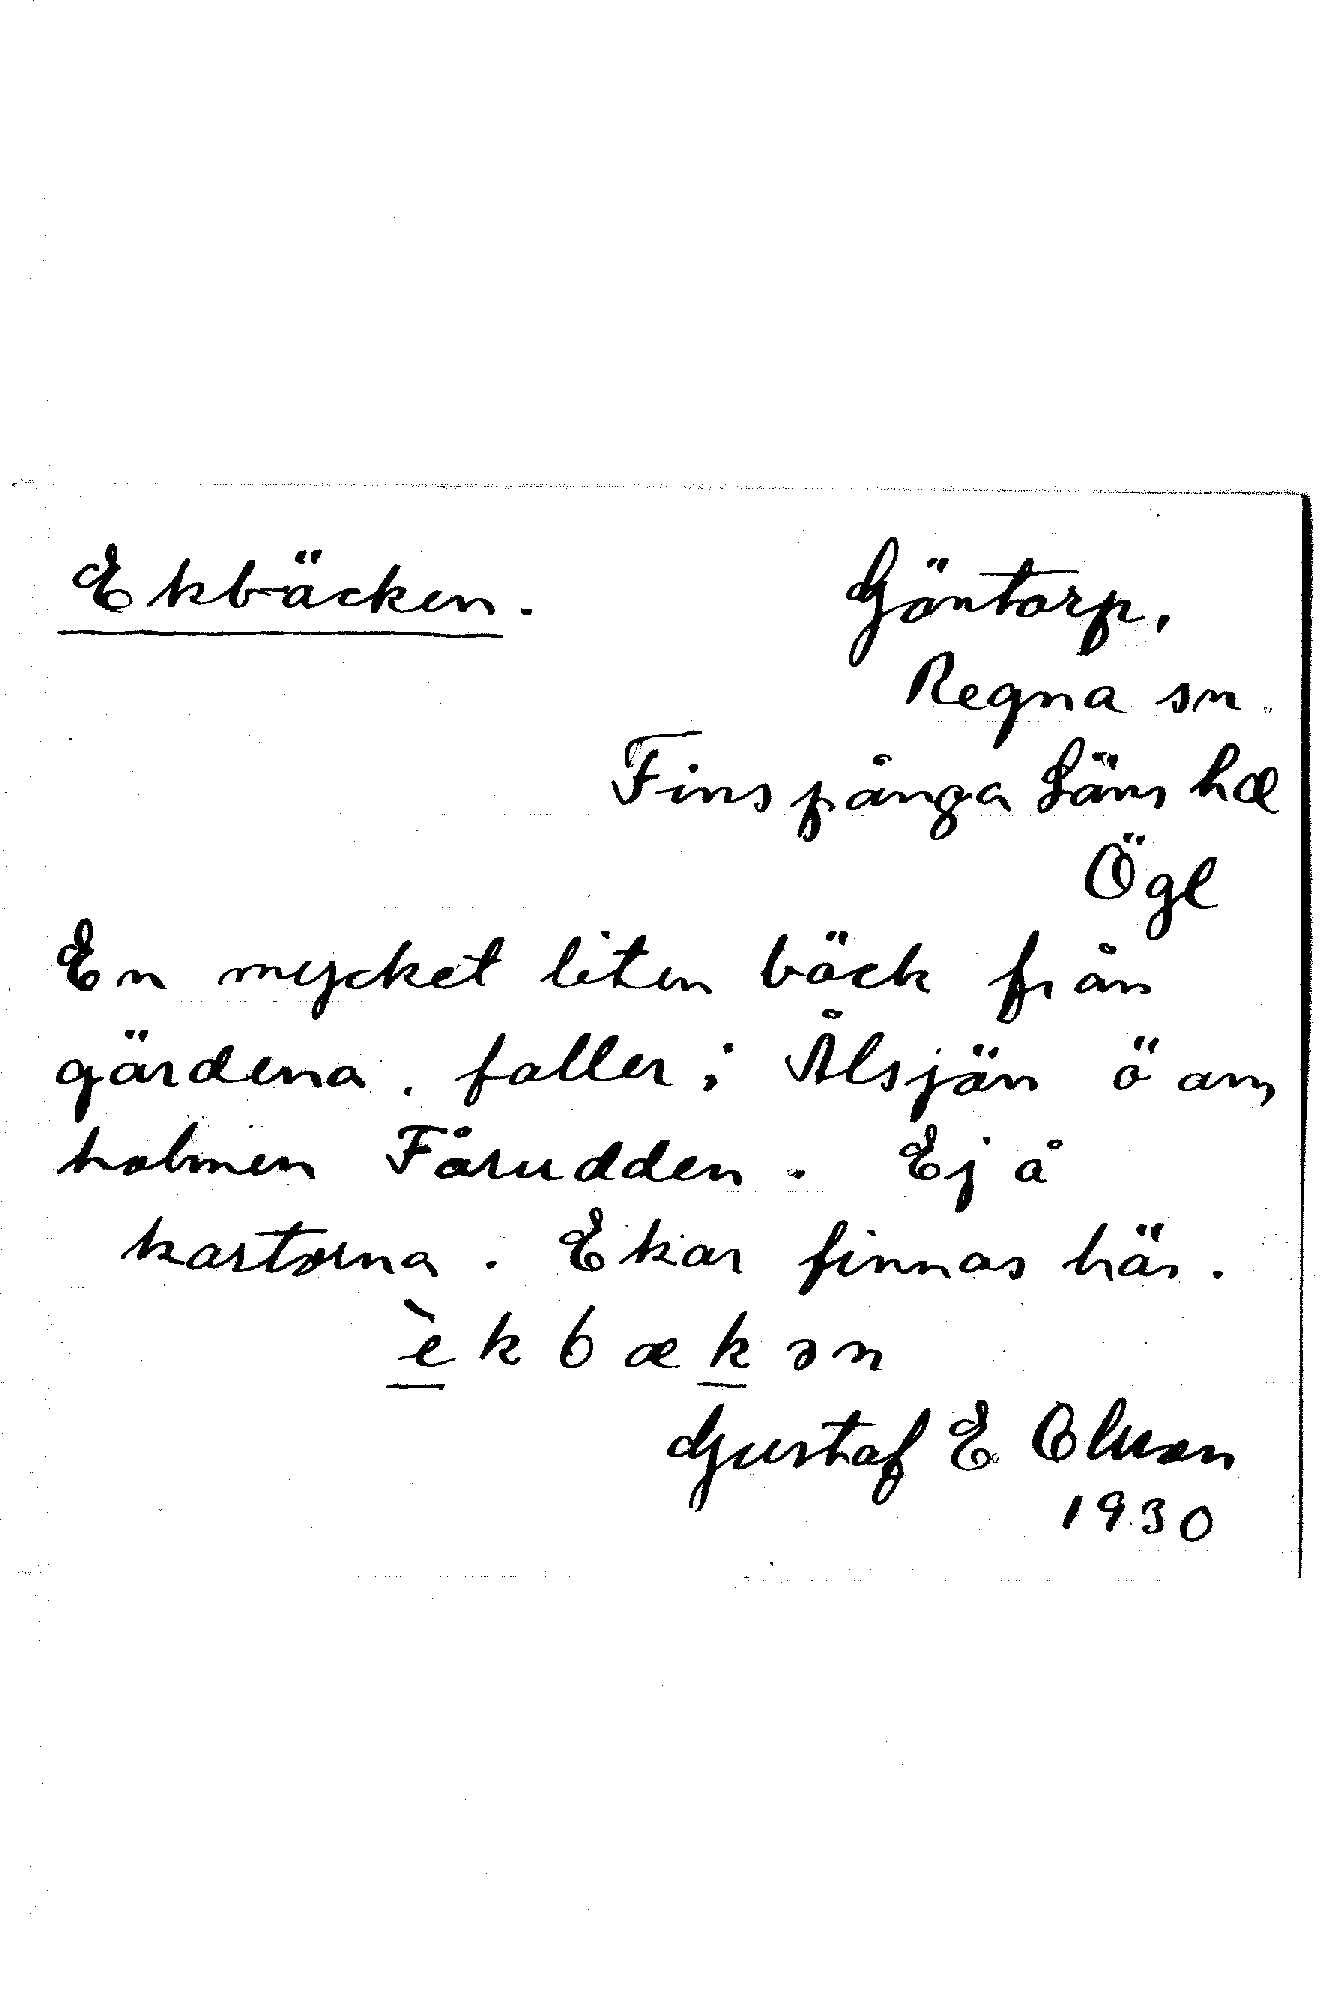 Ekbäcken. Göntorp,
Regna sn.
Finspånga Läns hd
Ögl
En mycket liten bäck från
gärdena. faller i Ålsjön ö om
holmen Fårudden. Ej å
kartorna. Ekar finnas här.
èkbækən
Gustaf E Olsson
1930